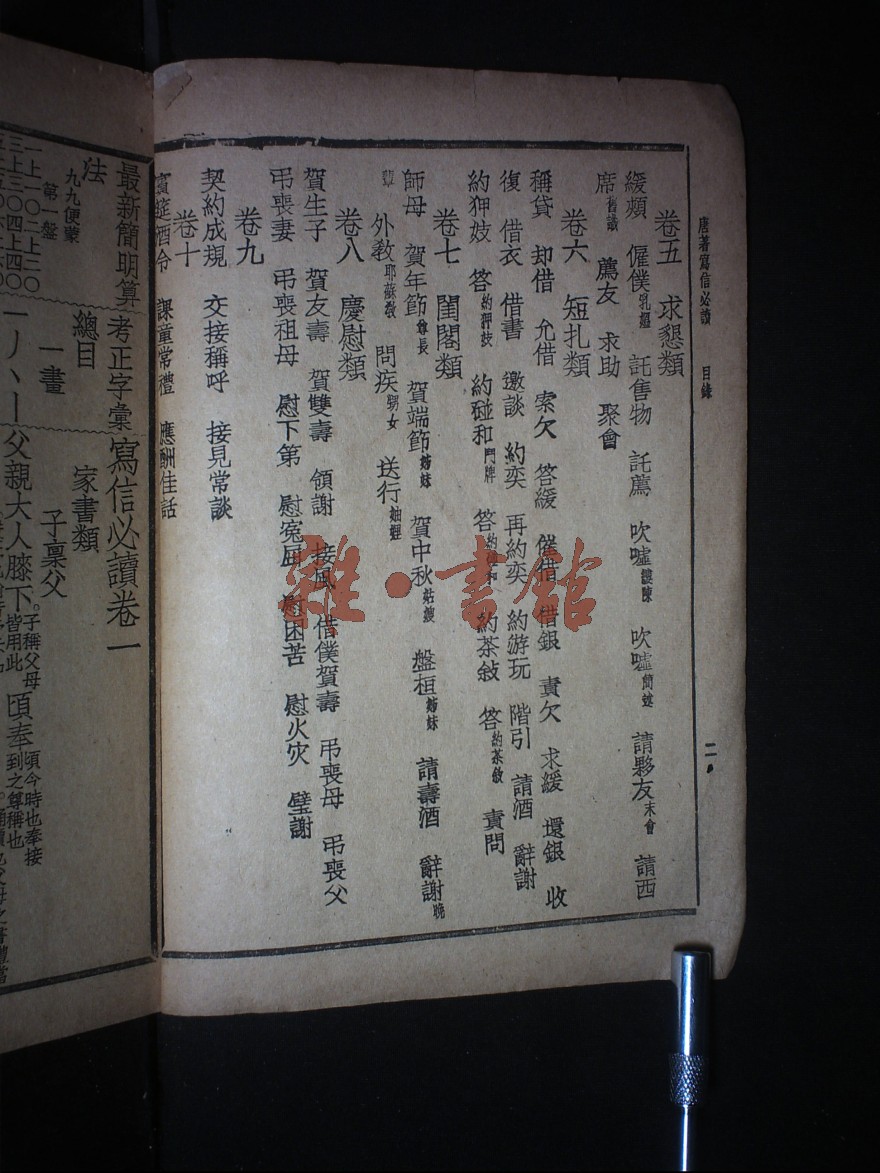 唐著寫信必讀 目錄 二
卷五 求懇類
緩頰 僱僕乳媪 託售物 託薦 吹噓 吹噓 請夥友末會 請西
席舊識 薦友 求助 聚會
卷六 短扎類
稱貸 却借 允借 索欠 答緩 催借 借銀 責欠 求緩 還銀 收
復 借衣 借書 邀談 約奕 再約奕 約游玩 階引 請酒 辭謝
約狎妓 答約狎妓 約碰和鬥牌 答約碰和 約茶敍 答約茶敍 責問
卷七 閨閣類
師母 賀年節尊長 賀端節姊妹 賀中秋姑嫂 盤桓姊妹 請壽酒 辭謝晚
輩 外教耶蘇教 問疾甥女 送行妯娌
卷八 慶慰類
賀生子 賀友壽 賀雙壽 領謝 接風 借僕賀壽 弔喪母 弔喪父
弔喪妻 弔喪祖母 慰下第 慰冤屈 慰困苦 慰火灾 璧謝
卷九
契約成規 交接稱呼 接見常談
卷十
賓筵酒令 課童常禮 應酬佳話
最新簡明算
法
九九便蒙
第一盤
一上一〇二上二〇
三上三〇四上四〇
考正字彙
總目
一畫
一丿丶丨
寫信必讀卷一
家書類
子稟父
父親大人膝下。子稱父母皆用此 頃奉頃今時也奉接到之尊稱也
雜·書館